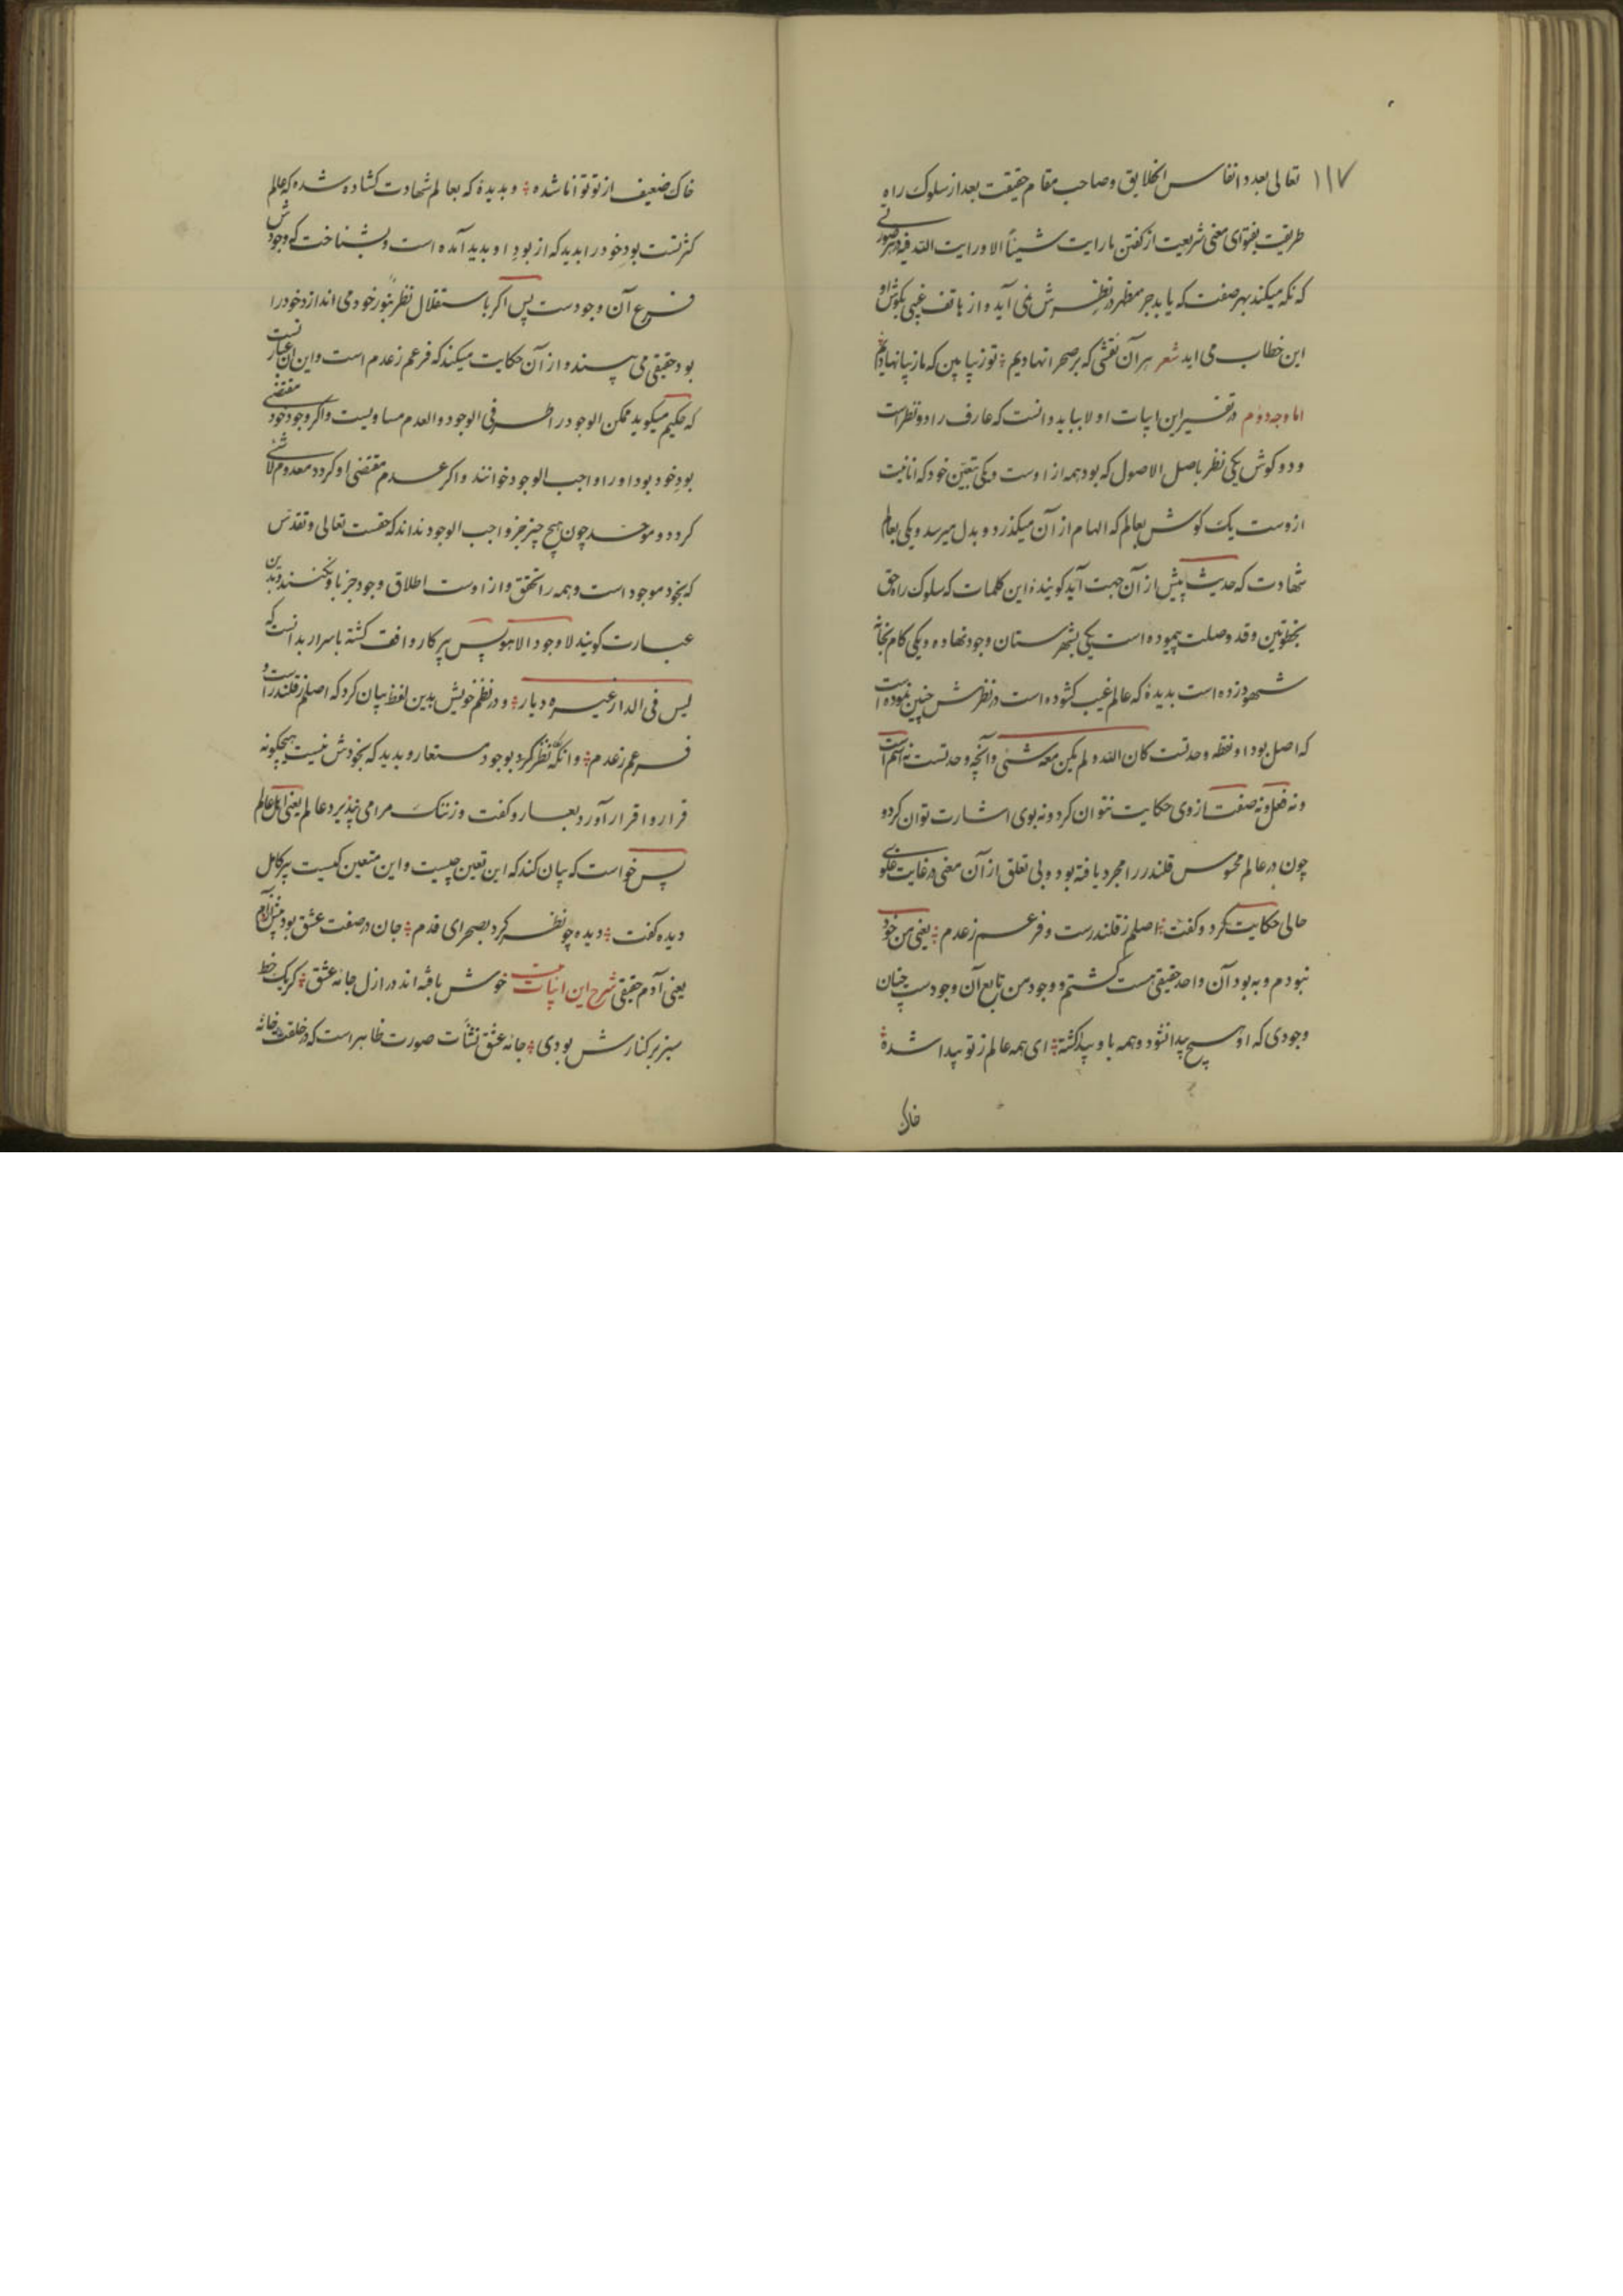 ۱۱۷
تعالی بعدد انفاس الخلایق وصاحب مقام حقیقت بعد از سلوک راه
طریقت بفتوای مغنی شریعت از کفتن ما رایت شیئاً الا ورایت الله فیه در هر صورتی
که نکه میکند بهر صفت که یابد جز مظهر در نظرش نمی آید و از هاتف غیبی بکوش او
این خطاب می اید شعر هر آن نقشی که بر صحرا نهادیم ؛ تو زیبا بین که ما زیبا نهادیم
اما وجه دوم در تفسیر این ابیات اولا بباید دانست که عارف را دو نظر است
و دو کوش یکی نظر باصل الاصول که بود همه از اوست ویکی بتعین خود که انانیت
ازوست یک کوش بعالم که الهام از آن میکذرد و بدل میرسد ویکی بعالم
شهادت که حدیث پیش از آن جهت آید کوینده این کلمات که سلوک راه حق
بخطوتین وقد وصلت پیموده است یکی بشهرستان وجود نهاده ویکی کام بخانه
شهود زده است بدیده که عالم غیب کشوده است در نظرش چنین نموده است
که اصل بود او نقطه وحدتست کان الله ولم یکن معه شئی وآنچه وحدتست نه اسم است
ونه فعل ونه صفت ازوی حکایت نتوان کرد ونه بوی اشارت توان کرد و
چون در عالم محسوس قلندر را مجرد یافته بود وبی تعلق از آن معنی در غایت علوی
حالی حکایت کرد وکفت ؛ اصلم ز قلندرست وفرعم ز عدم ؛ یعنی من خود
نبودم وبه بود آن واحد حقیقی هست کشتم و وجود من تابع آن وجودست چنان
وجودی که او هیچ پیدا نشود وهمه باو پیدا کشته ؛ ای همه عالم ز تو پیدا شده ؛
خاک
خاک ضعیف از تو توانا شده ؛ وبدیده که بعالم شهادت کشاده شده که عالم
کثرتست بود خود را بدید که از بود او بدید آمده است وبشناخت که وجودش
فرع آن وجودست پس اکر باستقلال نظر بنور خود می اندازد خود را
بود حقیقی می پسندد و از آن حکایت میکند که فرعم ز عدم است واین ان عبارتست
که حکیم میکوید ممکن الوجود را طرفی الوجود والعدم مساویست واکر وجود خود مقتضی
بود خود بود اورا واجب الوجود خوانند واکر عدم مقتضی او کردد معدوم لاشئی
کردد وموحد چون هیچ چیز جز واجب الوجود نداند که حقست تعالی وتقدس
که بخود موجود است وهمه را تحقق وار از اوست اطلاق وجود جز باو نکنند وبدین
عبارت کویند لا وجود الا هو پس پیر کار واقف کشته باسرار بدانست که
لیس فی الدار غیره دیار ؛ ودر نظم خویش بدین لفظ بیان کرد که اصلم ز قلندر است و
فرعم ز عدم ؛ وانکه نظر کرد بوجود مستعار وبدید که بخودش نیست هیچکونه
قرار واقرار آورد بعار وکفت وز ننک مرا می نپذیرد عالم یعنی اهل عالم
پس خواست که بیان کند که این تعین چیست واین متعین کیست پیر کامل
دیده کفت ؛ دیده چو نظر کرد بصحرای قدم ؛ جان در صفت عشق بود پیش از آدم
یعنی آدم حقیقی شرح این ابیات خوش بافته اند در ازل جامه عشق ؛ کر یک خط
سبز بر کنارش بودی ؛ جامه عشق نشأت صورت ظاهر است که در خلقت خانه